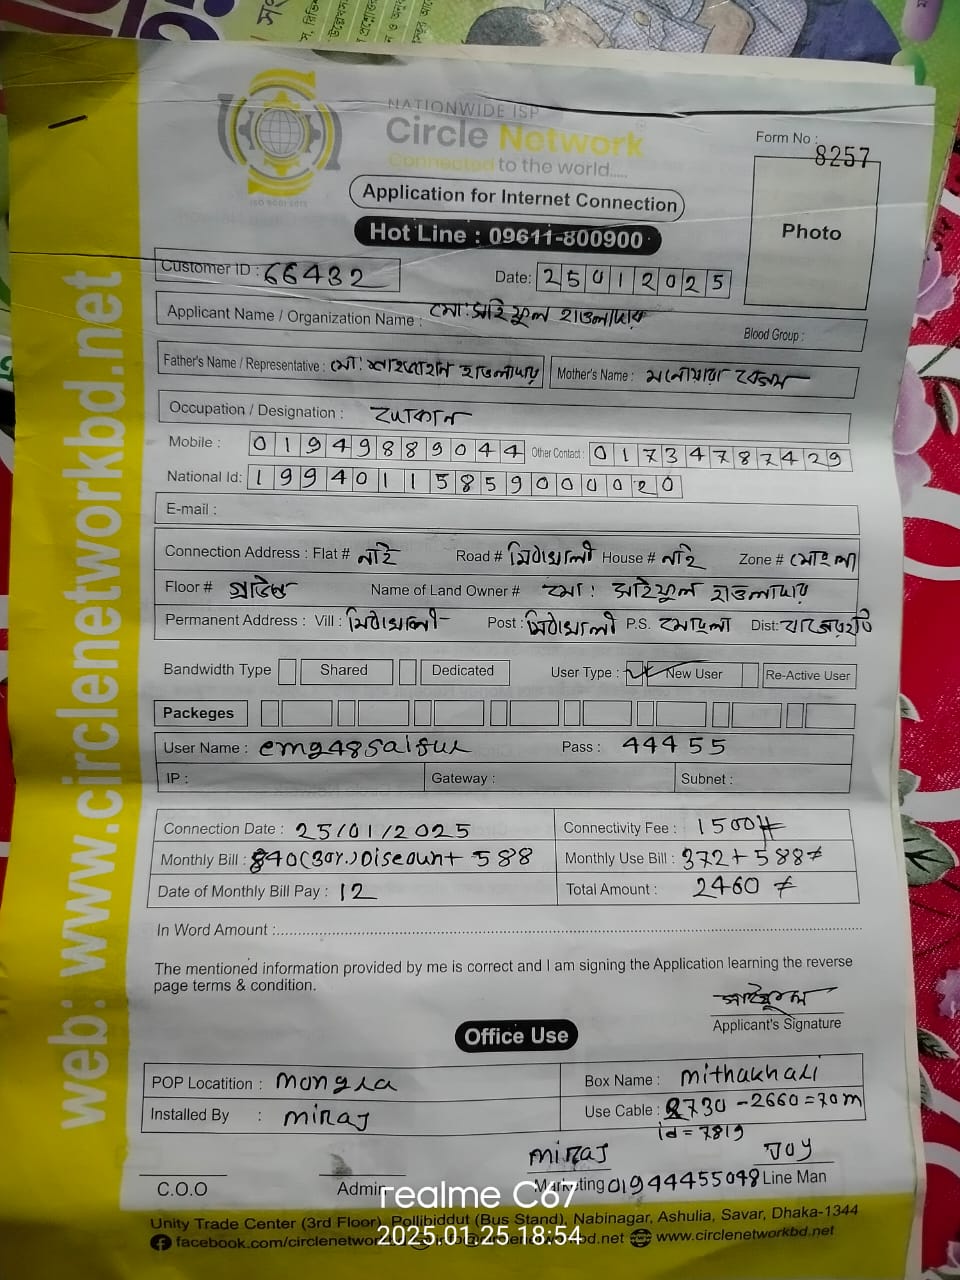 NATIONWIDE ISP
Circle Network
Connected to the world.....
ISO 9001:2015
Form No : 8257
Photo
Application for Internet Connection
Hot Line : 09611-800900
Customer ID : 66432
Date: 25012025
Applicant Name / Organization Name : মো: সাইফুল হাওলাদার
Blood Group :
Father's Name / Representative : মো: শাহজাহান হাওলাদার Mother's Name : মনোয়ারা বেগম
Occupation / Designation : দোকান
Mobile : 01949889044 Other Contact : 01734787429
National Id: 19940115859000020
E-mail :
Connection Address : Flat # নাই Road # মিঠাখালী House # নাই Zone # মোংলা
Floor # গ্রাউন্ড Name of Land Owner # মো: সাইফুল হাওলাদার
Permanent Address : Vill : মিঠাখালী Post : মিঠাখালী P.S. মোংলা Dist: বাগেরহাট
Bandwidth Type Shared Dedicated User Type : New User Re-Active User
Packeges
User Name : emg48saiful Pass : 44455
IP : Gateway : Subnet :
Connection Date : 25/01/2025 Connectivity Fee : 1500/=
Monthly Bill : 840(30%) Discount 588 Monthly Use Bill : 372+588/=
Date of Monthly Bill Pay : 12 Total Amount : 2460/=
In Word Amount :
The mentioned information provided by me is correct and I am signing the Application learning the reverse
page terms & condition.
সাইফুল
Applicant's Signature
Office Use
POP Locatition : Mongla Box Name : Mithakhali
Installed By : Miraj Use Cable : 2730 - 2660 = 70m
id = 7819
Miraj Joy
C.O.O Admin Marketing 01944455048 Line Man
Unity Trade Center (3rd Floor), Pollibiddut (Bus Stand), Nabinagar, Ashulia, Savar, Dhaka-1344
facebook.com/circlenetwor www.circlenetworkbd.net
web: www.circlenetworkbd.net
realme C67
2025.01.25 18:54